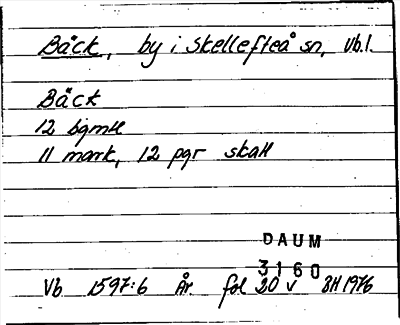 Bäck, by i Skellefteå sn, Vb.l.
Bäck
12 bgmH
11 mark, 12 pgr skatt
DAUM
3160
Vb 1597:6 År fol 30 v BH 1976